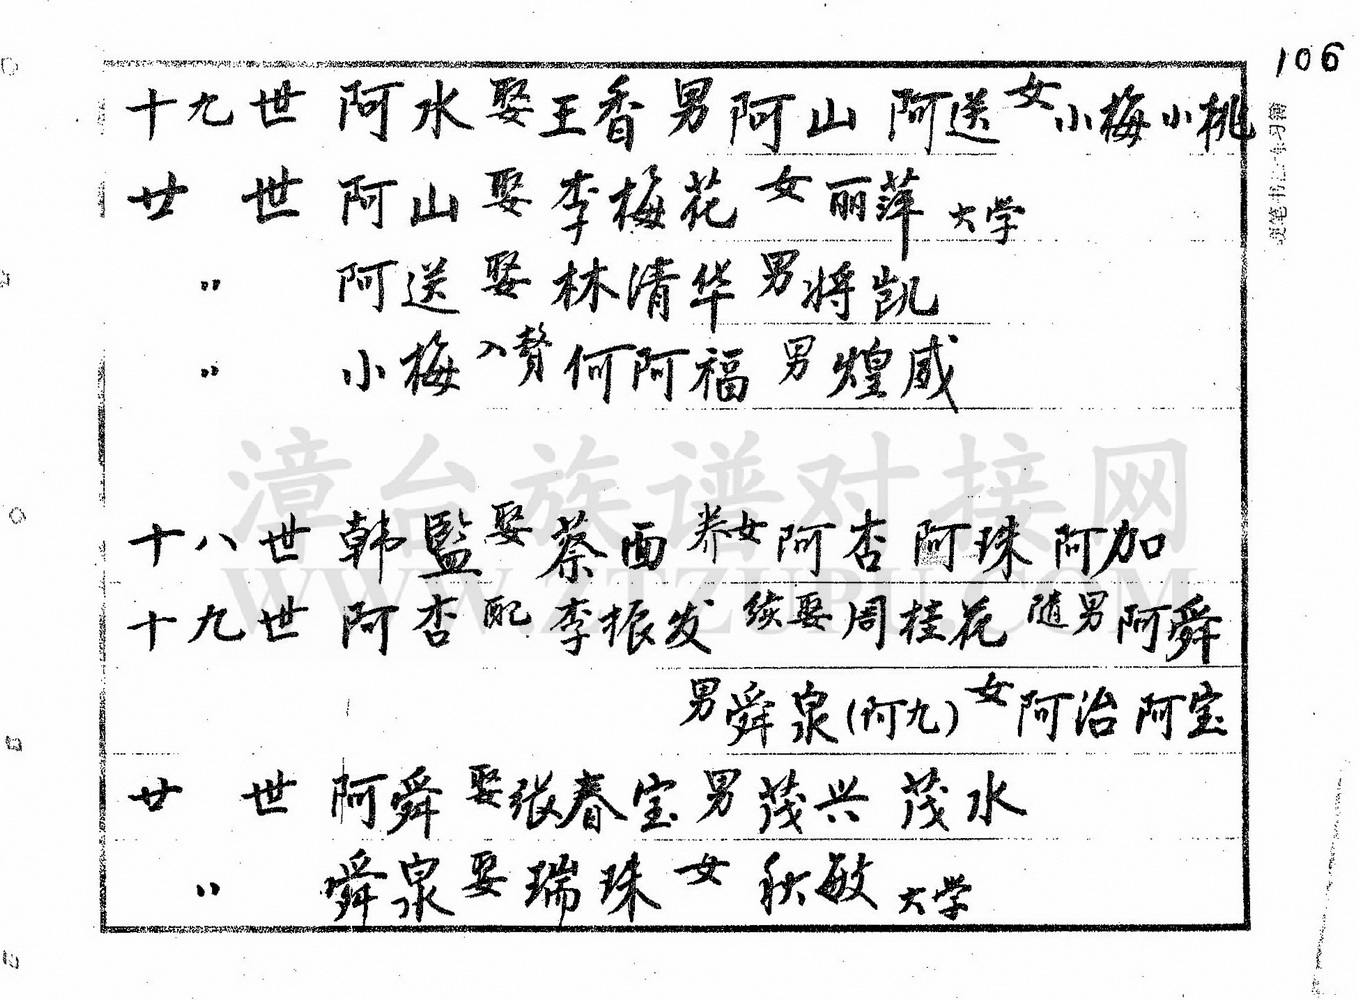 106
十九世 阿水 娶 王香 男 阿山 阿送 女 小梅 小桃
廿 世 阿山 娶 李梅花 女 丽萍 大学
〃 阿送 娶 林清华 男 将凯
〃 小梅 入赘 何阿福 男 煌威
漳台族谱对接网
WWW.ZTZUPU.COM
十八世 韩監 娶 蔡面 养女 阿杏 阿珠 阿加
十九世 阿杏 配 李振发 续娶 周桂花 随男 阿舜
男 舜泉(阿九) 女 阿治 阿宝
廿 世 阿舜 娶 张春宝 男 茂兴 茂水
〃 舜泉 娶 瑞珠 女 秋敏 大学